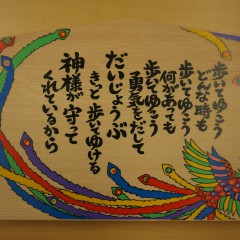 歩いてゆこう
どんな時も
歩いてゆこう
何があっても
歩いてゆこう
勇気をだして
だいじょうぶ
きっと歩いてゆける
神様が守って
くれているから